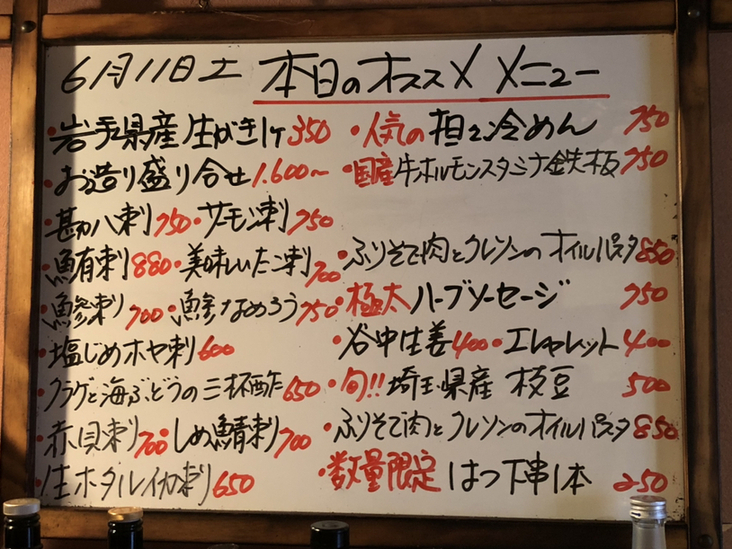 6月11日土 本日のオススメ メニュー
・岩手県産生がき1ケ350
・お造り盛り合せ1.600〜
・勘八刺750・サーモン刺750
・鮪刺880・美味しいたこ刺700
・鯵刺700・鯵なめろう750
・塩じめホヤ刺600
・クラゲと海ぶどうの三杯酢650
・赤貝刺700・しめ鯖刺700
・生ホタルイカ刺650
・人気の担々冷めん 750
・国産牛ホルモンスタミナ鉄板750
・ふりそで肉とクレソンのオイルパスタ850
・極太ハーブソーセージ 750
・谷中生姜400・エシャレット400
・旬!!埼玉県産 枝豆 500
・ふりそで肉とクレソンのオイルパスタ850
・数量限定 はつ下串1本 250